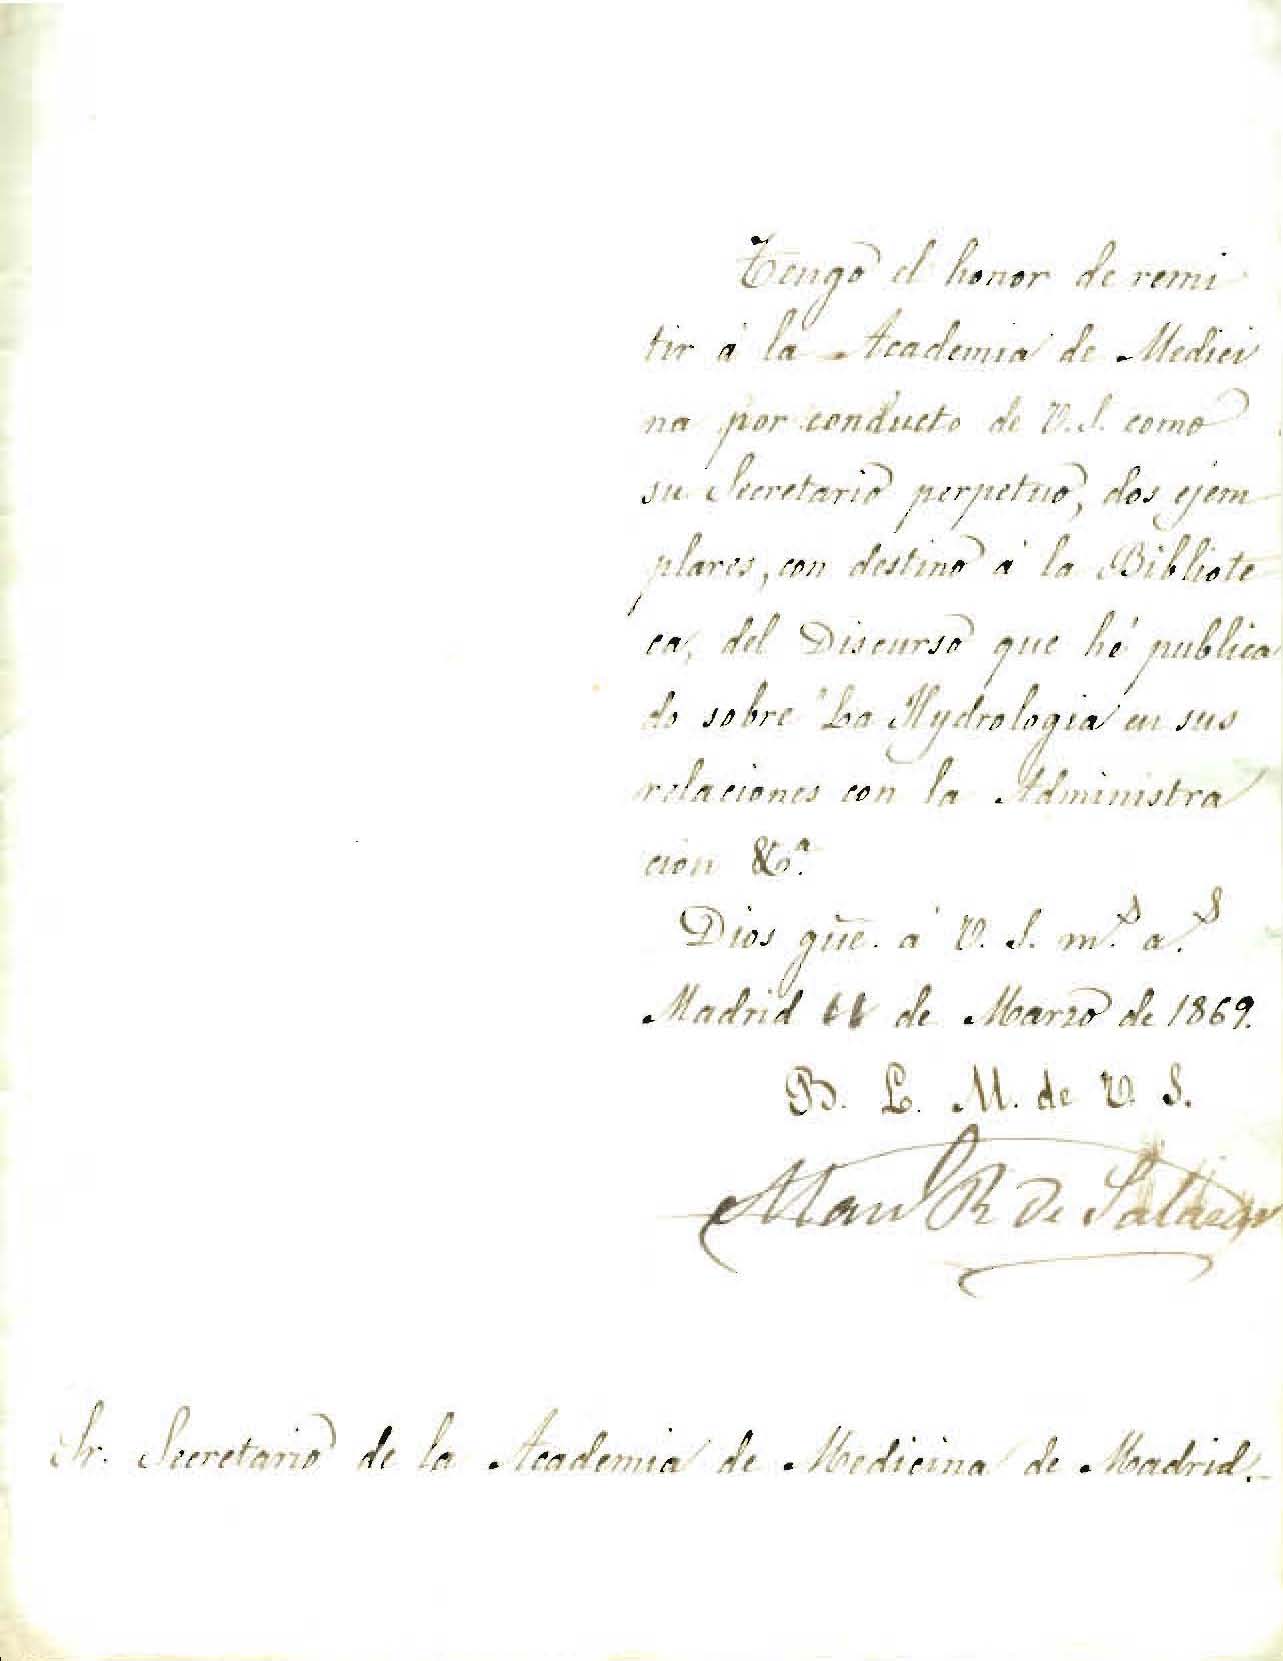 Tengo el honor de remi
tir á la Academia de Medici
na por conducto de V. S. como
su Secretario perpetuo, dos ejem
plares, con destino á la Bibliote
ca, del Discurso que hé publica
do sobre "La Hydrologia en sus
relaciones con la Administra
cion &ª.
Dios güe. á V. S. m.s a.s
Madrid 11 de Marzo de 1869.
B. L. M. de V. S.
Manl R de Salazar
Sr. Secretario de la Academia de Medicina de Madrid.